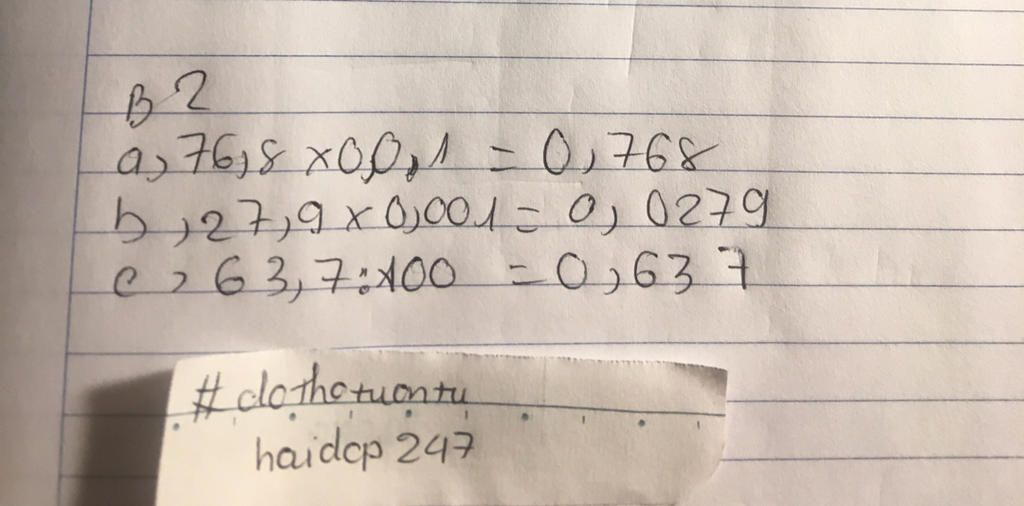 B2
a, 76,8 x 0,0,1 = 0,768
b, 27,9 x 0,001 = 0,0279
c, 63,7:100 = 0,637
#dothotuontu
haidcp247